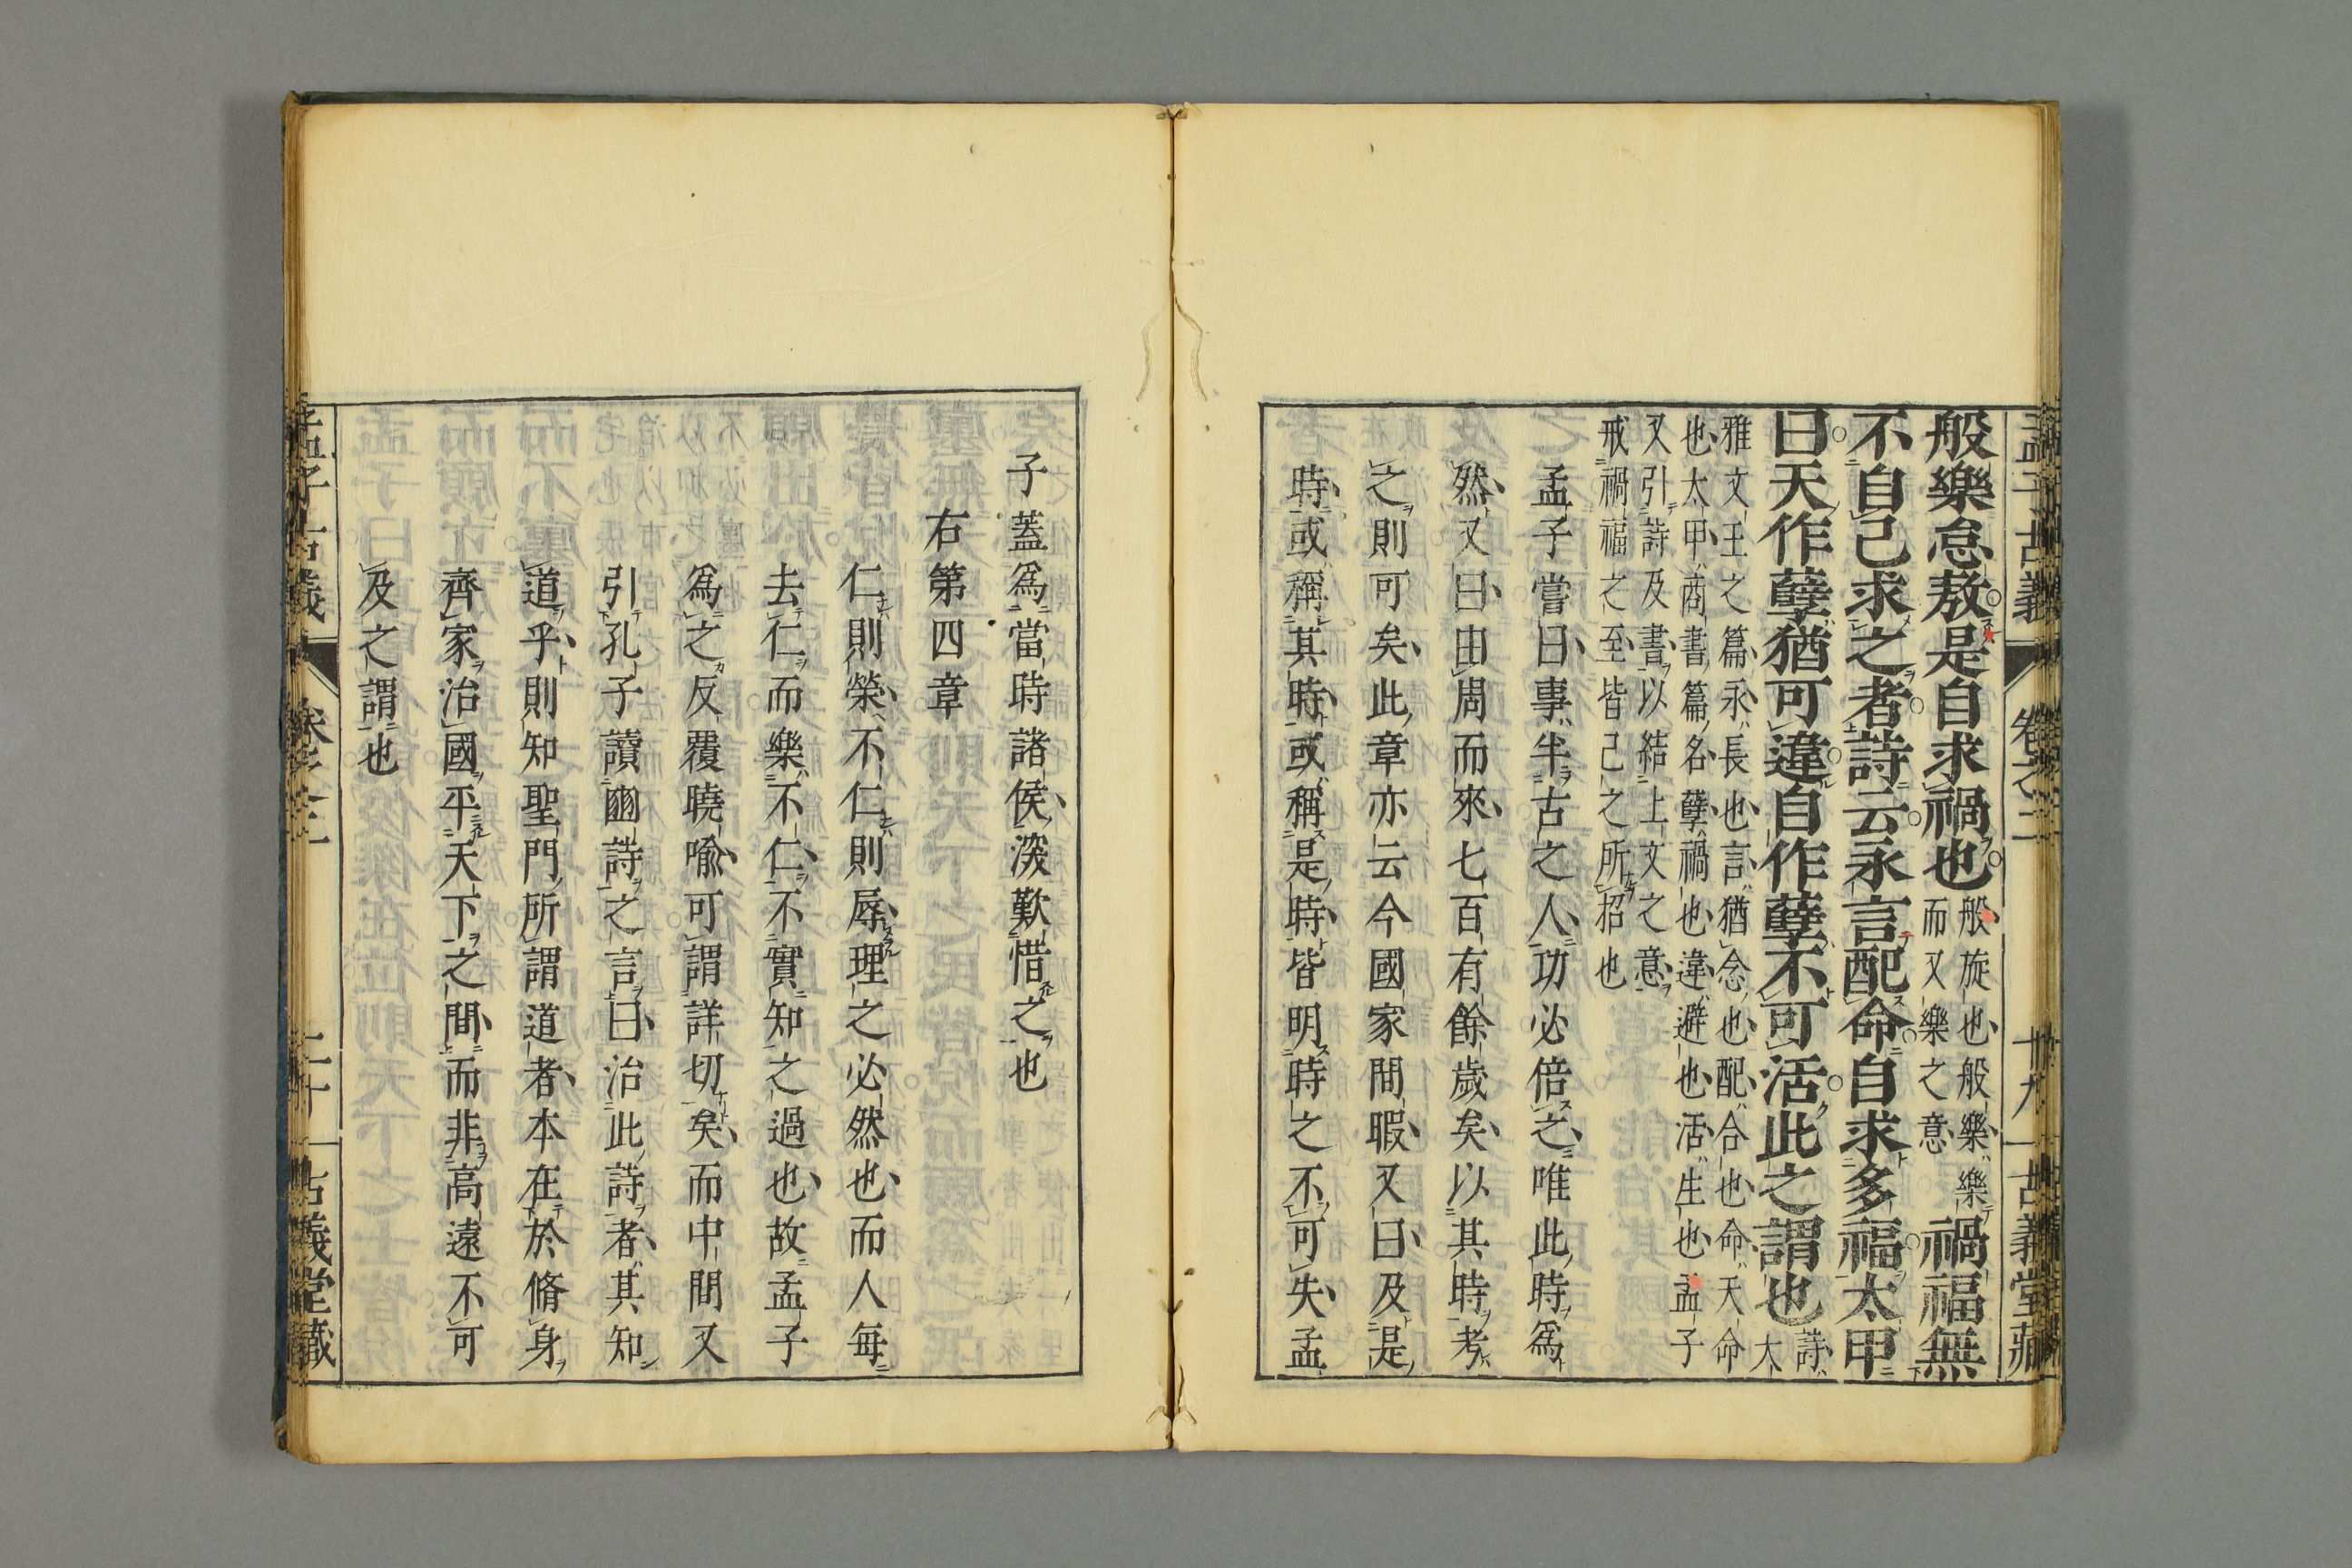 孟子古義 卷之二 十九 古義堂藏
般樂怠敖是自求禍也般旋也般樂樂而又樂之意禍福無
不自己求之者詩云永言配命自求多福太甲
曰天作孽猶可違自作孽不可活此之謂也詩大
雅文王之篇永長也言猶念也配合也命天命
也太甲商書篇名孽禍也違避也活生也孟子
又引詩及書以結上文之意
戒禍福之至皆己之所招也
孟子嘗曰事半古之人功必倍之唯此時爲
然又曰由周而來七百有餘歲矣以其時考
之則可矣此章亦云今國家間暇又曰及是
時或稱其時或稱是時皆明時之不可失孟
子蓋爲當時諸侯深歎惜之也
右第四章
仁則榮不仁則辱理之必然也而人每
去仁而樂不仁不實知之過也故孟子
爲之反覆曉喩可謂詳切矣而中間又
引孔子讀豳詩之言曰治此詩者其知
道乎則知聖門所謂道者本在於脩身
齊家治國平天下之間而非高遠不可
及之謂也
孟子古義 卷之二 二十 古義堂藏